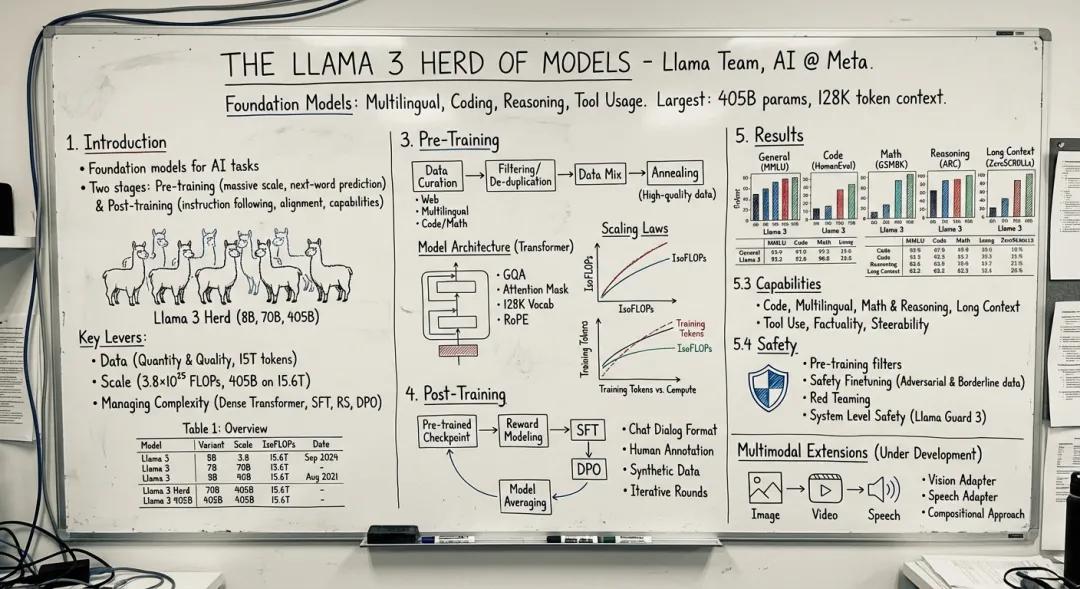 THE LLAMA 3 HERD OF MODELS – Llama Team, AI @ Meta.
Foundation Models: Multilingual, Coding, Reasoning, Tool Usage. Largest: 405B params, 128K token context.
1. Introduction
• Foundation models for AI tasks
• Two stages: Pre-training (massive scale, next-word prediction)
& Post-training (instruction following, alignment, capabilities)
Llama 3 Herd (8B, 70B, 405B)
Key Levers:
• Data (Quantity & Quality, 15T tokens)
• Scale (3.8×10²⁵ FLOPs, 405B on 15.6T)
• Managing Complexity (Dense Transformer, SFT, RS, DPO)
Table 1: Overview
Model Variant Scale IsoFLOPs Date
Llama 3 3.8 15.6T Sep 2024
Llama 3 70B -
Llama 3 15.6T Aug 2021
Llama 3 Herd 70B 405B 15.6T -
Llama 3 405B 405B 405B 15.6T -
3. Pre-Training
Data Curation
Filtering/ De-duplication
Data Mix
Annealing
(High-quality data)
• Web
• Multilingual
• Code/Math
Model Architecture (Transformer)
• GQA
• Attention Mask
• 128K Vocab
• RoPE
Scaling Laws
IsoFLOPs
IsoFLOPs
IsoFLOPs
Training Tokens
IsoFLOPs
Training Tokens vs. Compute
4. Post-Training
Pre-trained Checkpoint
Reward Modeling
SFT
DPO
Model Averaging
• Chat Dialog Format
• Human Annotation
• Synthetic Data
• Iterative Rounds
5. Results
General (MMLU)
Code (HumanEval)
Math (GSM8K)
Reasoning (ARC)
Long Context (ZeroSCROLLs)
Llama 3
Llama 3
Llama 3
Llama 3
Llama 3
MMLU Code Math Long
General
Llama 3
MMLU Code Math Long ZeroSCROLLS
Code
Code
Reasoning
Long Context
5.3 Capabilities
• Code, Multilingual, Math & Reasoning, Long Context
• Tool Use, Factuality, Steerability
5.4 Safety
• Pre-training filters
• Safety Finetuning (Adversarial & Borderline data)
• Red Teaming
• System Level Safety (Llama Guard 3)
Multimodal Extensions (Under Development)
Image
Video
Speech
• Vision Adapter
• Speech Adapter
• Compositional Approach